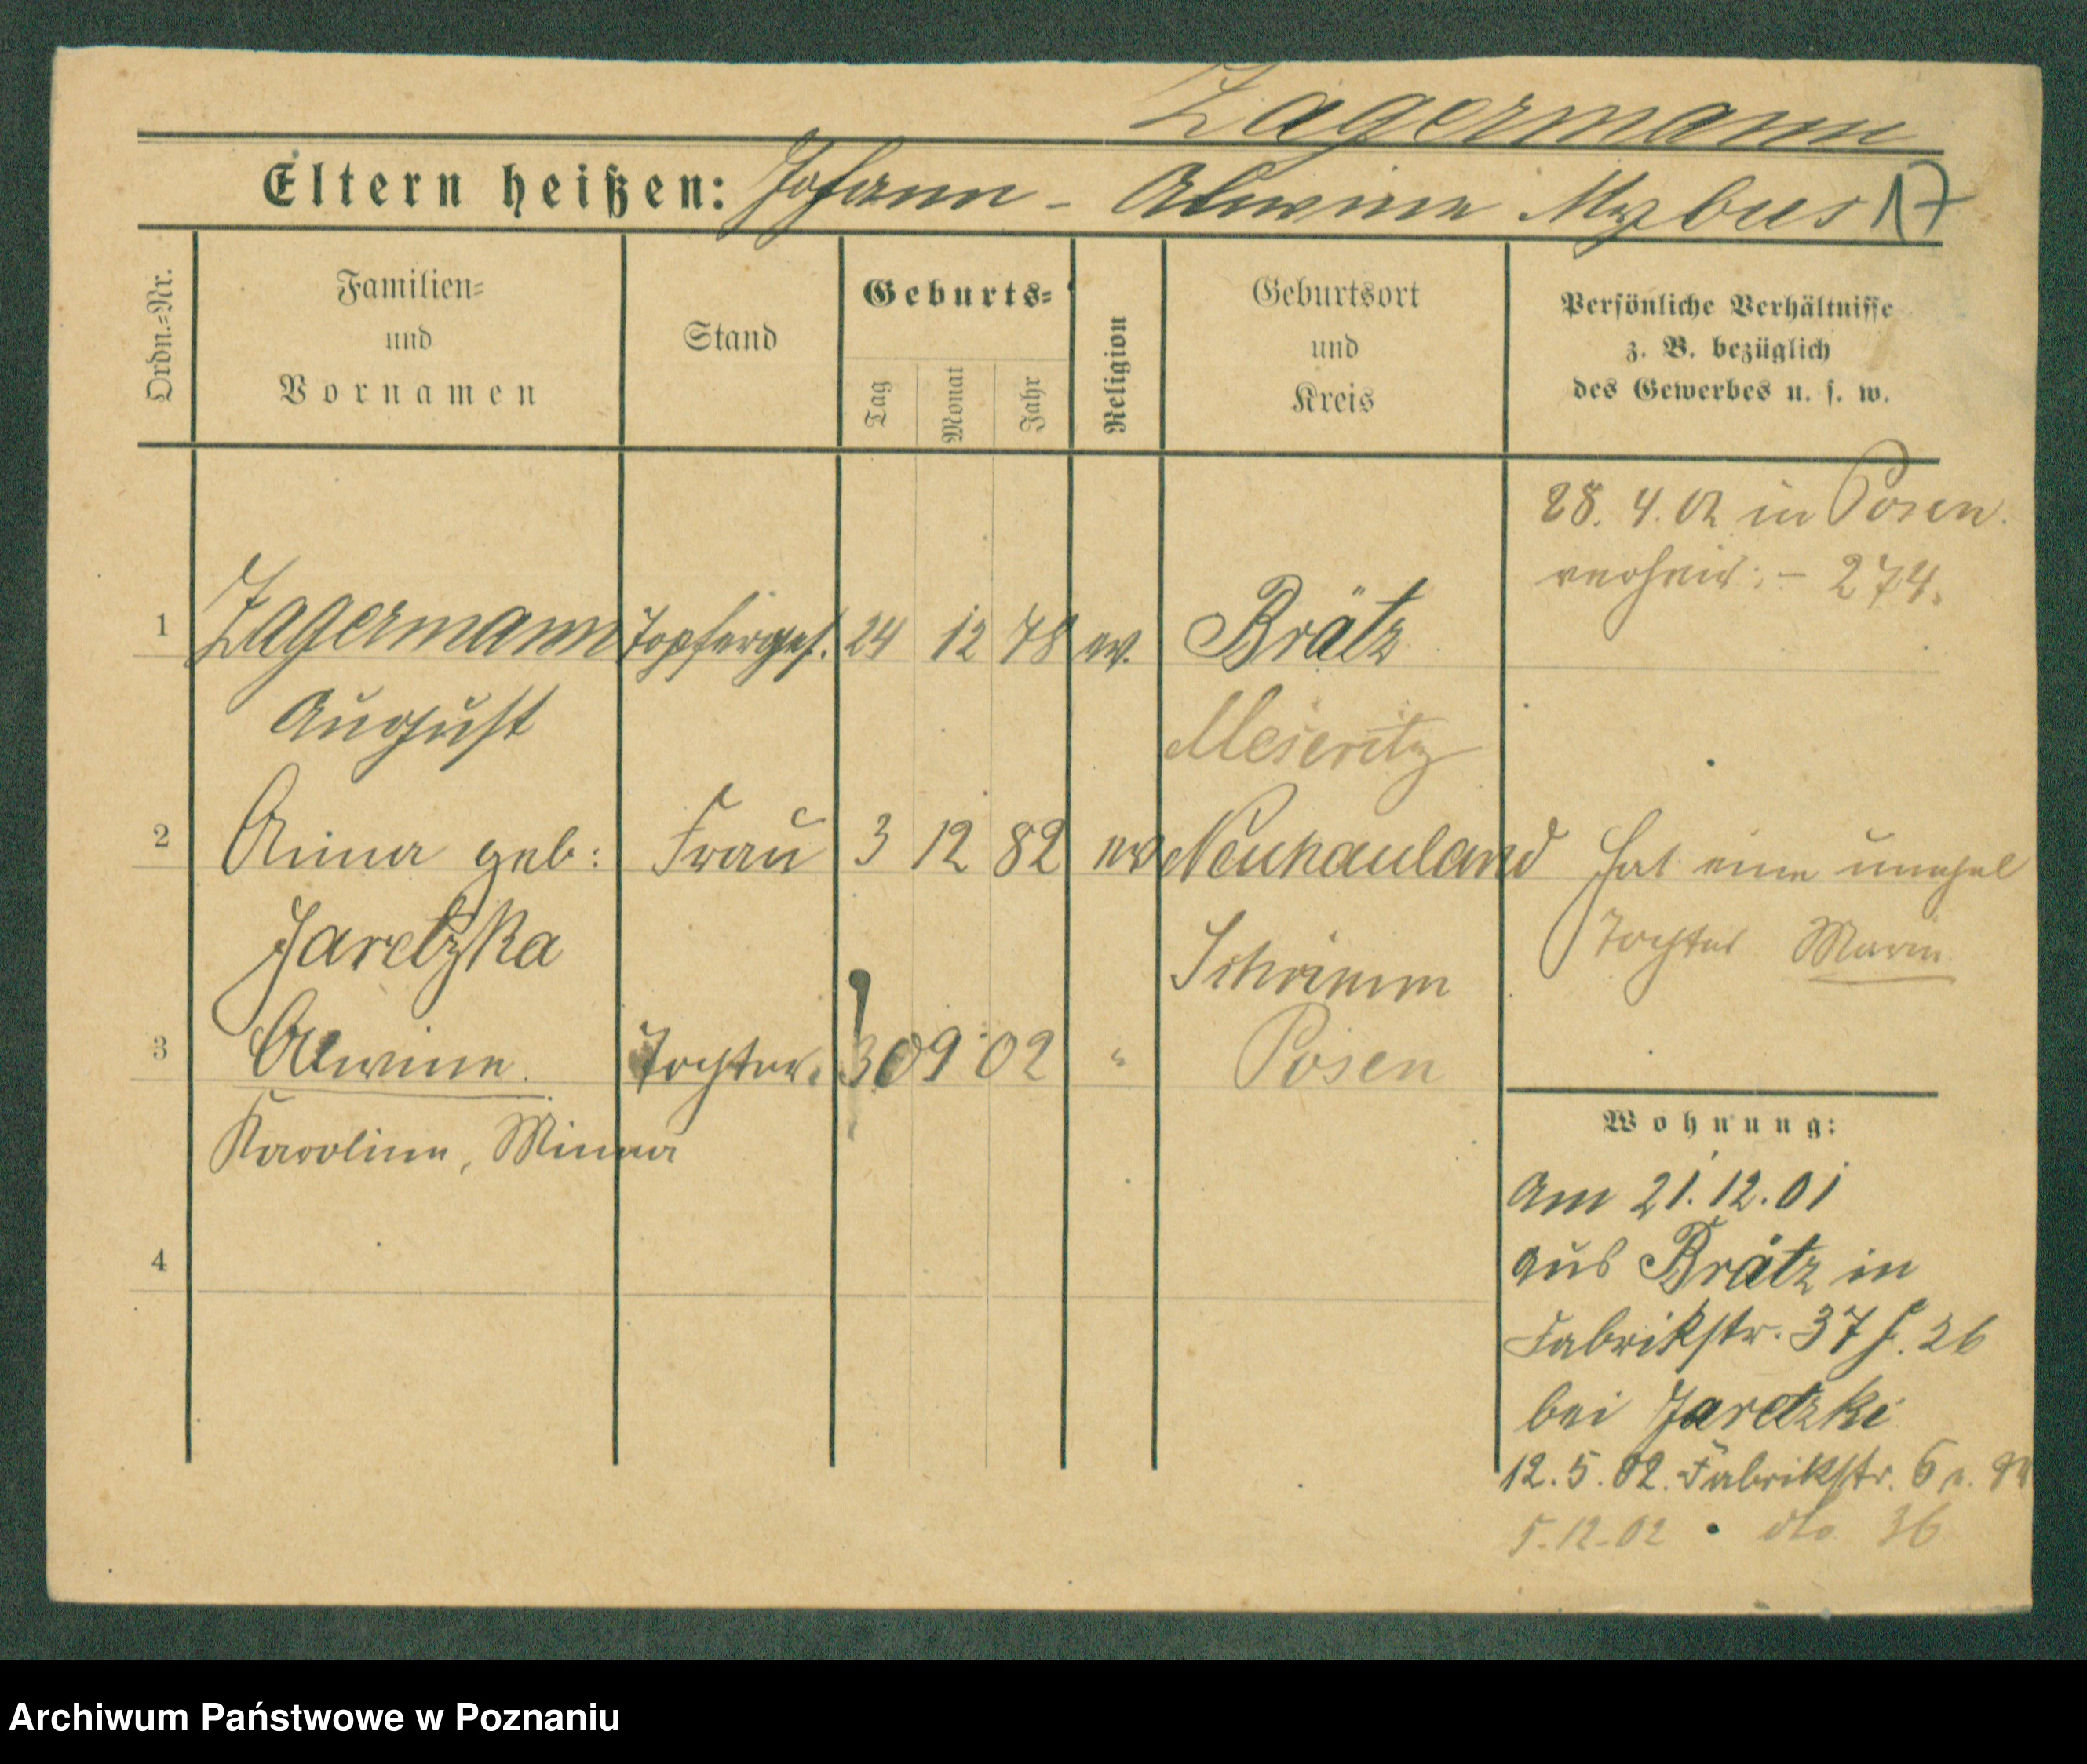 Zagermann
Eltern heißen: Johann - Alwine Mybus 17
Ordn.=Nr.
Familien=
und
Vornamen
Stand
Geburts=
Tag
Monat
Jahr
Religion
Geburtsort
und
Kreis
Persönliche Verhältnisse
z. B. bezüglich
des Gewerbes u. s. w.
28. 4. 02 in Posen.
verheir: - 274.
1 Zagermann Töpferges. 24 12 78 ev. Brätz
August
Meseritz
2 Anna geb: Frau 3 12 82 ev Neuhauland hat eine unehel
Jaretzka
Tochter Marie
Schrimm
3 Alwine. Tochter. 30 9 02 " Posen
Karoline, Minna
Wohnung:
Am 21.12.01
4
aus Brätz in
Fabrikstr. 37 26
bei Jaretzki
12.5.02. Fabrikstr. 6
5.12.02 dto 36
Archiwum Państwowe w Poznaniu